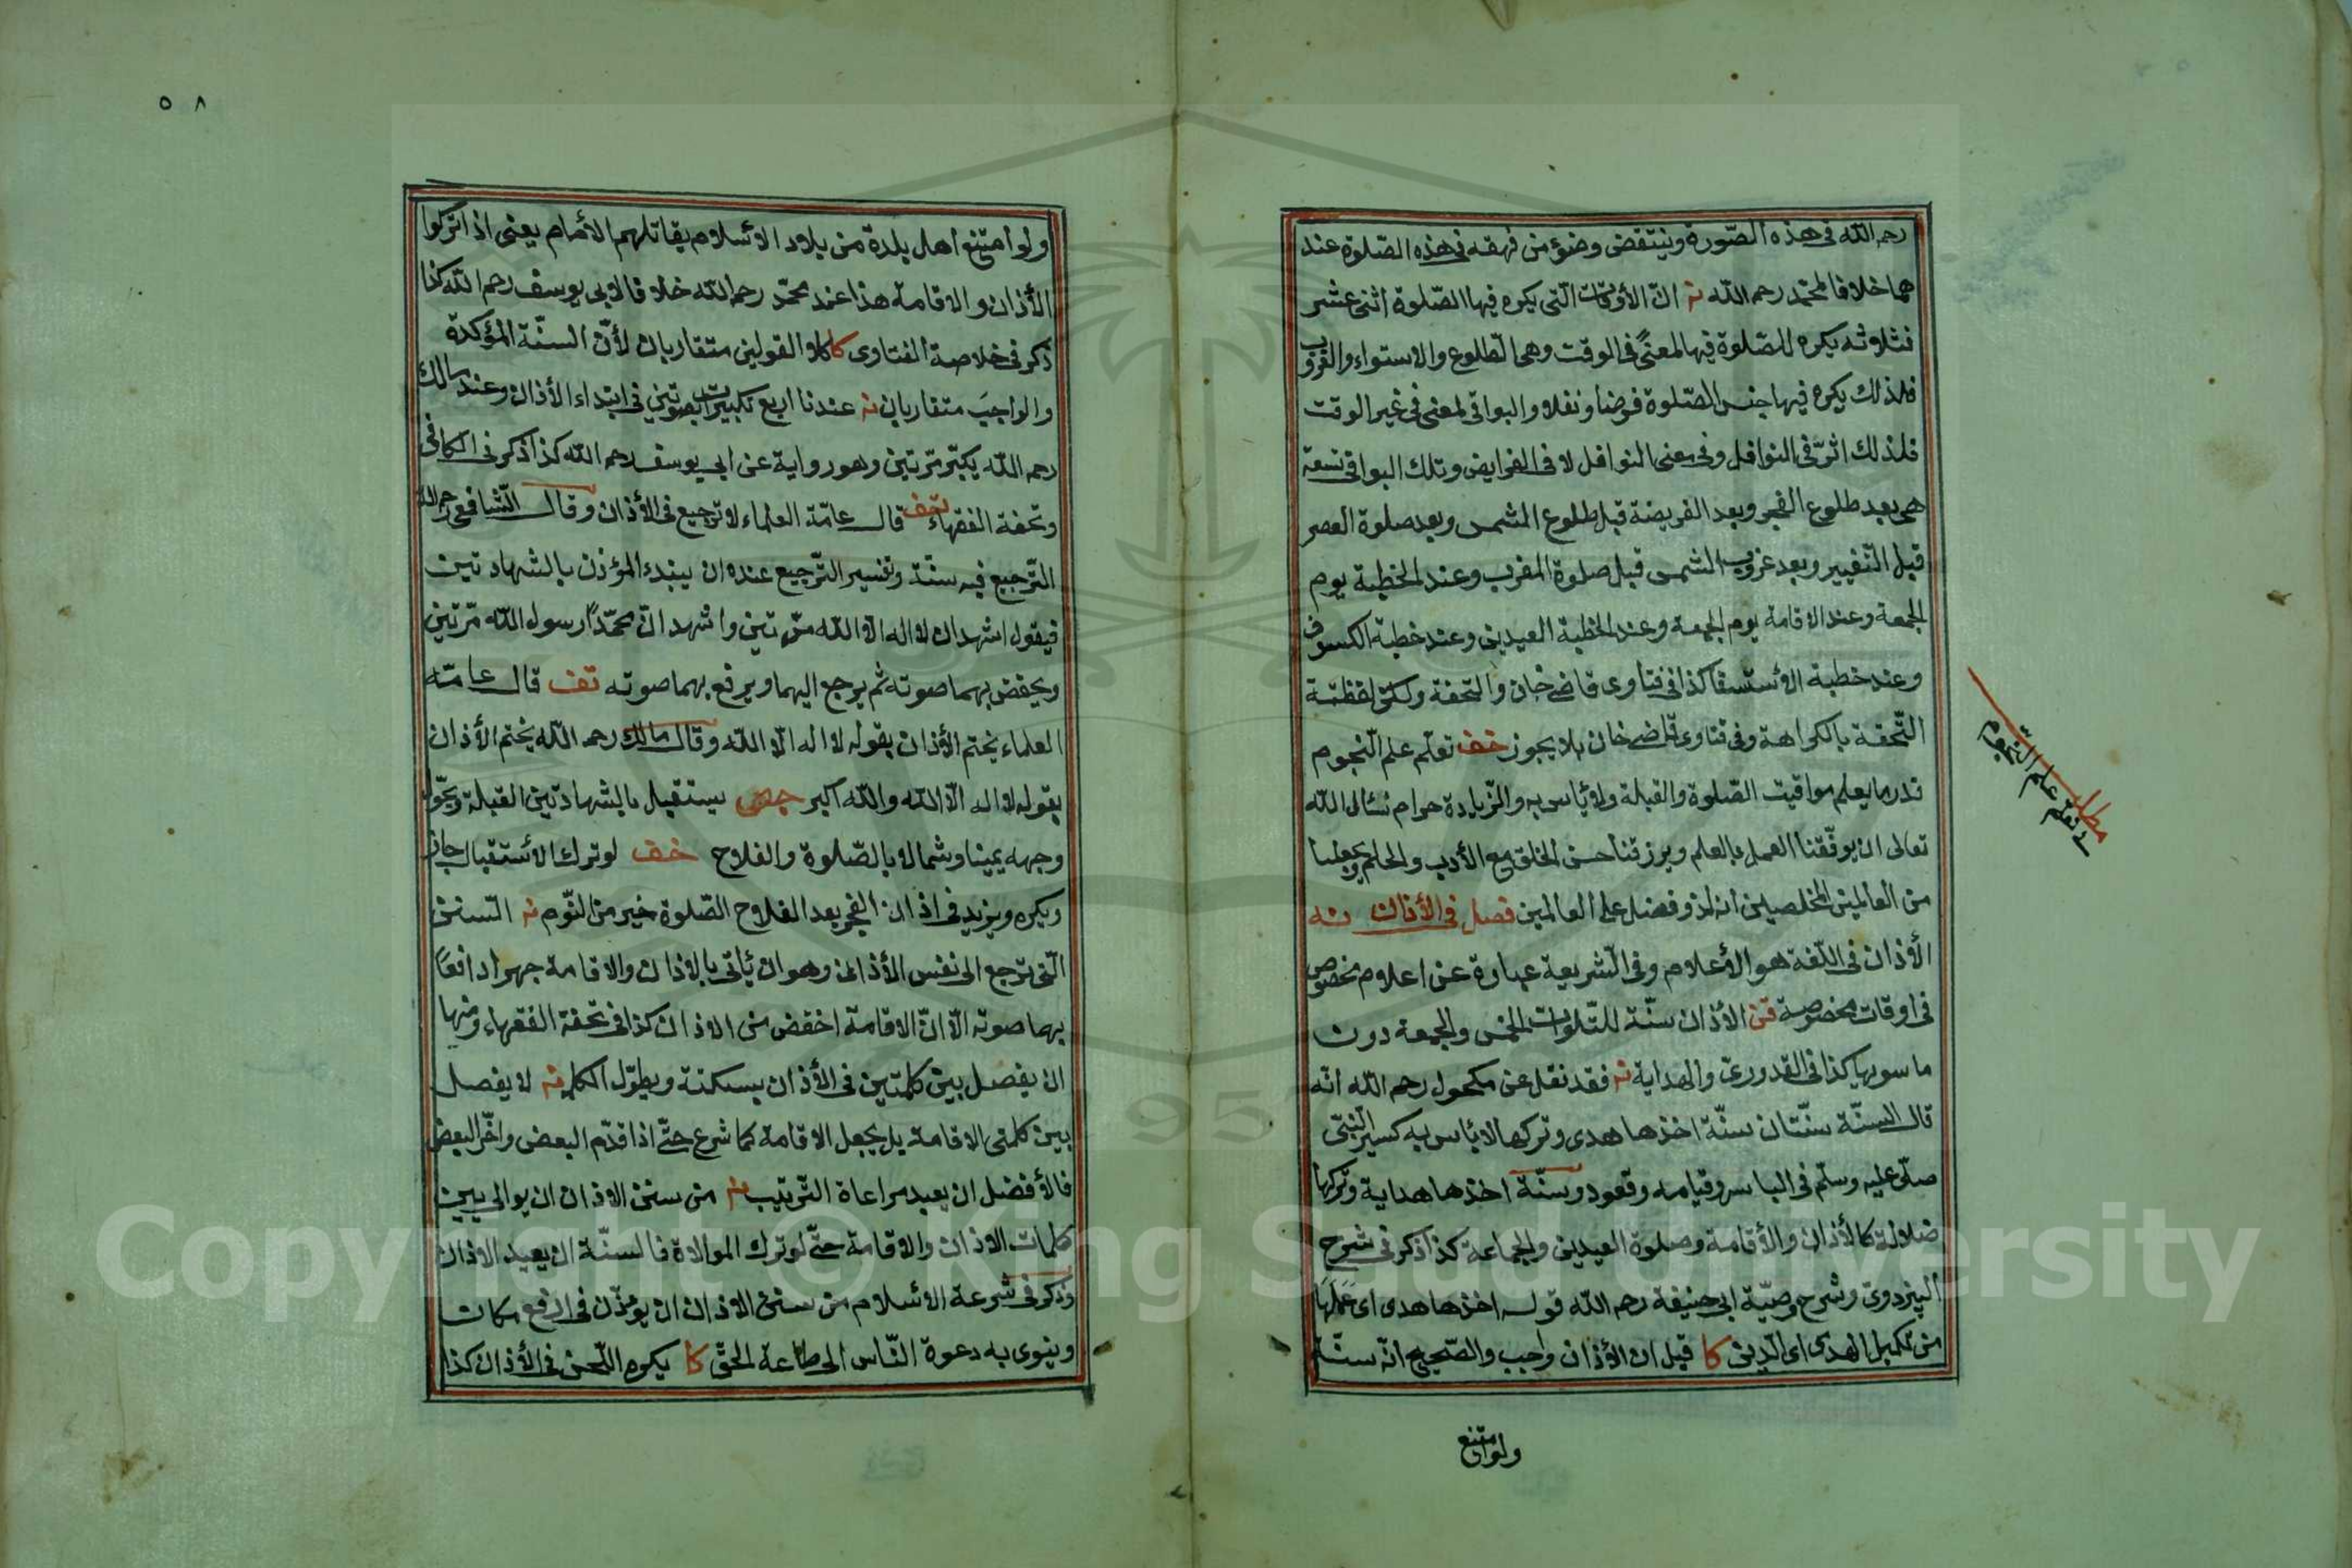 رحمه الله فى هذه الصّورة وينتقض وضؤ من قهقه فى هذه الصّلوة عند
هما خلافا لمحمّد رحمه الله نه انّ الأوقات الّتى يكره فيها الصّلوة اثنى عشر
فثلاثه يكره الصّلوة فيها لمعنًى فى الوقت وهى الطلوع والاستواء والغروب
فلذلك يكره فيها جنس الصّلوة فرضا ونفلا والبواقى لمعنى فى غير الوقت
فلذلك اثرّ فى النوافل وفى معنى النوافل لا فى الفرايض وتلك البواقى تسعة
هى بعد طلوع الفجر وبعد الفريضة قبل طلوع الشمس وبعد صلوة العصر
قبل التّغيير وبعد غروب الشمس قبل صلوة المغرب وعند الخطبة يوم
الجمعة وعند الاقامة يوم الجمعة وعند الخطبة العيدين وعند خطبة الكسوف
وعند خطبة الأستسقا كذا فى فتاوى قاضى خان والتحفة ولكن لفظة
التّحفة بالكراهة وفى فتاوى قاضى خان بلا يجوز خف تعلّم علم النّجوم
قدر ما يعلم مواقيت الصّلوة والقبلة ولا بأس به والزّيادة حرام نسأل الله
تعالى ان يوفّقنا العمل بالعلم ويرزقنا حسن الخلق مع الأدب والحلم ويجعلنا
من العالمين المخلصين انه لذو فضل على العالمين فصل فى الأذان نه
الأذان فى اللّغة هو الأعلام وفى الشّريعة عبارة عن اعلام مخصوص
فى اوقات مخصوصة قن الأذان سنّة للصّلوات الخمس والجمعة دون
ما سويها كذا فى القدورى والهداية نه فقد نقل عن مكحول رحمه الله انّه
قال السنّة سنّتان سنّة اخذها هدى وتركها لا بأس به كسير النّبىّ
صلّى عليه وسلّم فى الباسه وقيامه وقعوده وسنّة اخذها هداية وتركها
ضلالة كالأذان والأقامة وصلوة العيدين والجماعة كذا ذكر فى شرح
البزدوى وشرح وصيّة ابى حنيفة رحمه الله قوله اخذها هدى اى عملها
من تكميل الهدى اى الدّين كا قيل ان الأذان واجب والصّحيح انّه سنّة
ولو امتنع
مطلب
تعلم علم النجوم
٥٨
ولو امتنع اهل بلدة من بلاد الأسلام يقاتلهم الأمام يعنى اذا تركوا
الأذان والاقامة هذا عند محمّد رحمه الله خلافا لابى يوسف رحمه الله كذا
ذكر فى خلاصة الفتاوى كا كلا القولين متقاربان لأنّ السنّة المؤكدة
والواجب متقاربان نه عندنا اربع تكبيرات بصوتين فى ابتداء الأذان وعند مالك
رحمه الله يكبّر مرّتين وهو رواية عن ابى يوسف رحمه الله كذا ذكر فى الكافى
وتحفة الفقهاء تحف قال عامّة العلماء لا ترجيع فى الأذان وقال الشّافعى رحمه الله
التّرجيع فيه سنّة وتفسير التّرجيع عنده ان يبتدء المؤذن بالشهادتين
فيقول اشهد ان لا اله الّا الله مرّتين واشهد انّ محمّدًا رسول الله مرّتين
ويخفض بهما صوته ثم يرجع اليهما ويرفع بهما صوته تف قال عامّة
العلماء يختم الأذان بقوله لا اله الّا الله وقال مالك رحمه الله يختم الأذان
بقوله لا اله الّا الله والله اكبر جص يستقبل بالشهادتين القبلة ويحوّل
وجهه يمينا وشمالا بالصّلوة والفلاح خف لو ترك الأستقبال جاز
ويكره ويزيد فى اذان الفجر بعد الفلاح الصّلوة خير من النّوم نه السنن
الّتى ترجع الى نفس الأذان وهو ان يأتى بالاذان والاقامة جهرا رافعًا
بهما صوته الّا انّ الاقامة اخفض من الاذان كذا فى تحفة الفقهاء ومنها
ان يفصل بين كلمتين فى الأذان بسكتة ويطوّل الكلام نه لا يفصل
بين كلمتى الاقامة بل يجعل الاقامة كما شرع حتّى اذا قدّم البعض واخّر البعض
فالأفضل ان يعيد مراعاة التّرتيب نه من سنن الاذان ان يوالى بين
كلمات الاذان والاقامة حتّى لو ترك الموالاة فالسنّة ان يعيد الاذان
وذكر فى شرعة الأسلام من سنن الاذان ان يؤذّن فى ارفع مكان
وينوى به دعوة النّاس الى طاعة الحقّ كا يكره اللّحن فى الأذان كذا
Copyright © King Saud University
1957